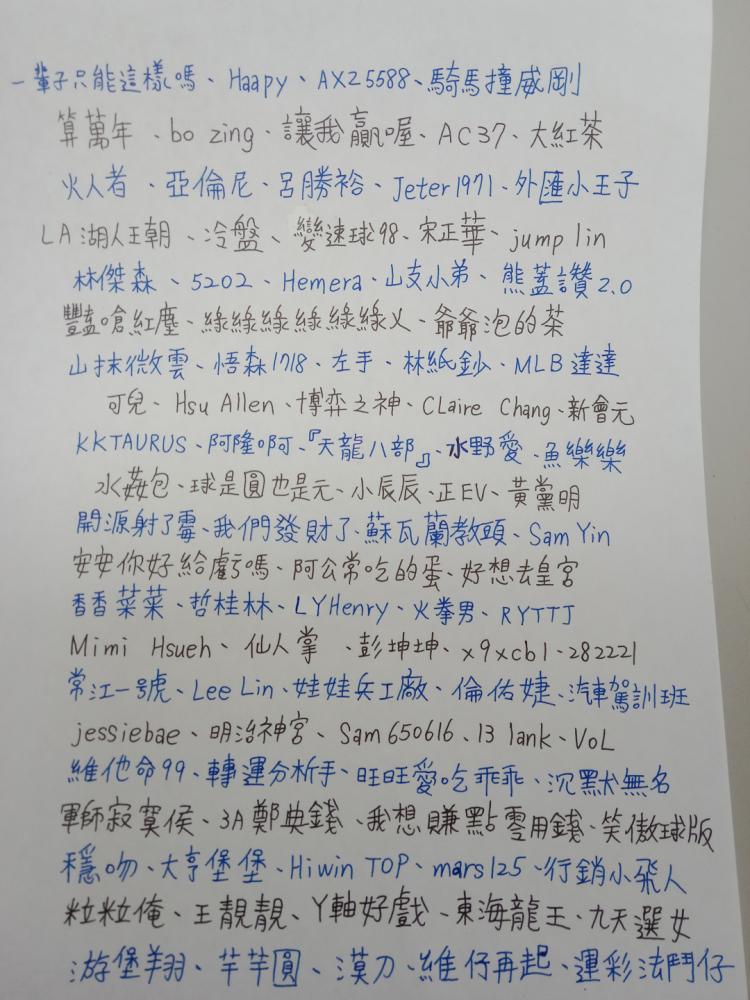 一輩子只能這樣嗎、Haapy、AX25588、騎馬撞威剛
算萬年、bo zing、讓我贏喔、AC37、大紅茶
火人者、亞倫尼、呂勝裕、Jeter1971、外匯小王子
LA湖人王朝、冷盤、變速球98、宋正華、jump lin
林傑森、5202、Hemera、山支小弟、熊蓋讚2.0
豔嗆紅塵、綠綠綠綠綠綠火、爺爺泡的茶
山抹微雲、悟森1718、左手、林紙鈔、MLB達達
可兒、Hsu Allen、博弈之神、Claire Chang、新會元
KKTAURUS、阿隆啊、『天龍八部』、水野愛、魚樂樂
水姦包、球是圓也是元、小辰辰、正EV、黃黨明
開源射了霉、我們發財了、蘇瓦蘭教頭、Sam Yin
安安你好給虧嗎、阿公常吃的蛋、好想去皇宮
香香菜菜、哲桂林、LYHenry、火拳男、RYTTJ
Mimi Hsueh、仙人掌、彭坤坤、x9xcb1、282221
常江一號、Lee Lin、娃娃兵工廠、倫佑婕、汽車駕訓班
jessiebae、明治神宮、Sam650616、13 lank、VoL
維他命99、轉運分析手、旺旺愛吃乖乖、沉默無名
軍師寂寞侯、3A鄭典錢、我想賺點零用錢、笑傲球版
穩吻、大亨堡堡、Hiwin TOP、mars125、行銷小飛人
粒粒俺、王靚靚、Y軸好戲、東海龍王、九天選女
游堡翔、芊芊圓、漠刀、維仔再起、運彩法鬥仔